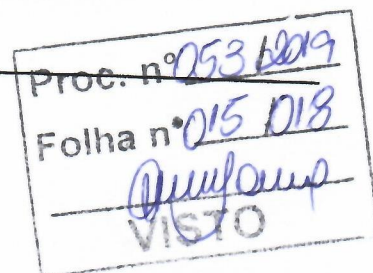 Proc. nº 053/2019
Folha nº 015/018
VISTO